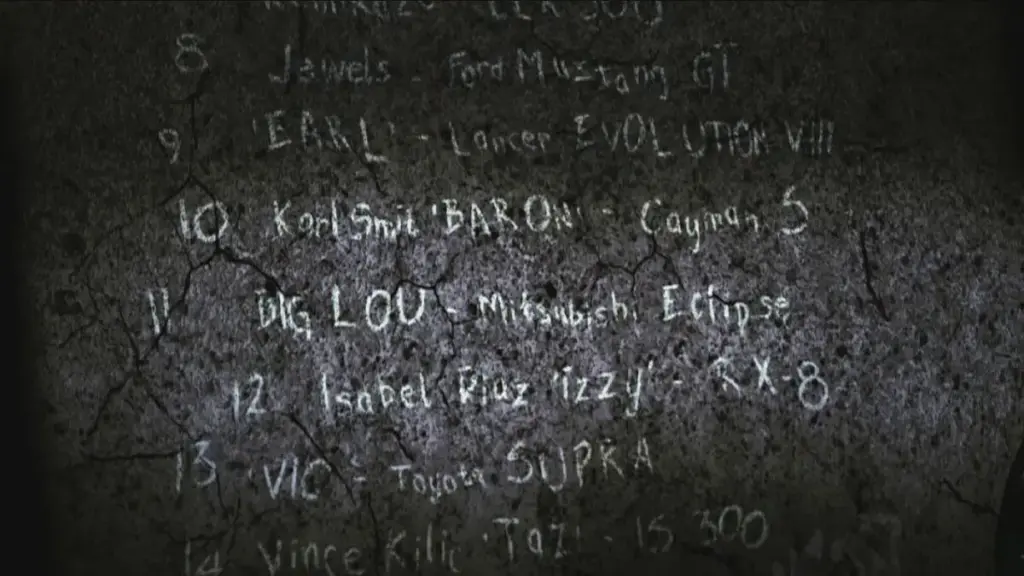 8 Jewels - Ford Mustang GT
9 'EARL' - Lancer EVOLUTION VIII
10 Karl Smit 'BARON' - Cayman S
11 BIG LOU - Mitsubishi Eclipse
12 Isabel Diaz 'izzy' - RX-8
13 'VIC' - Toyota SUPRA
14 Vince Kilic 'Taz' - IS 300